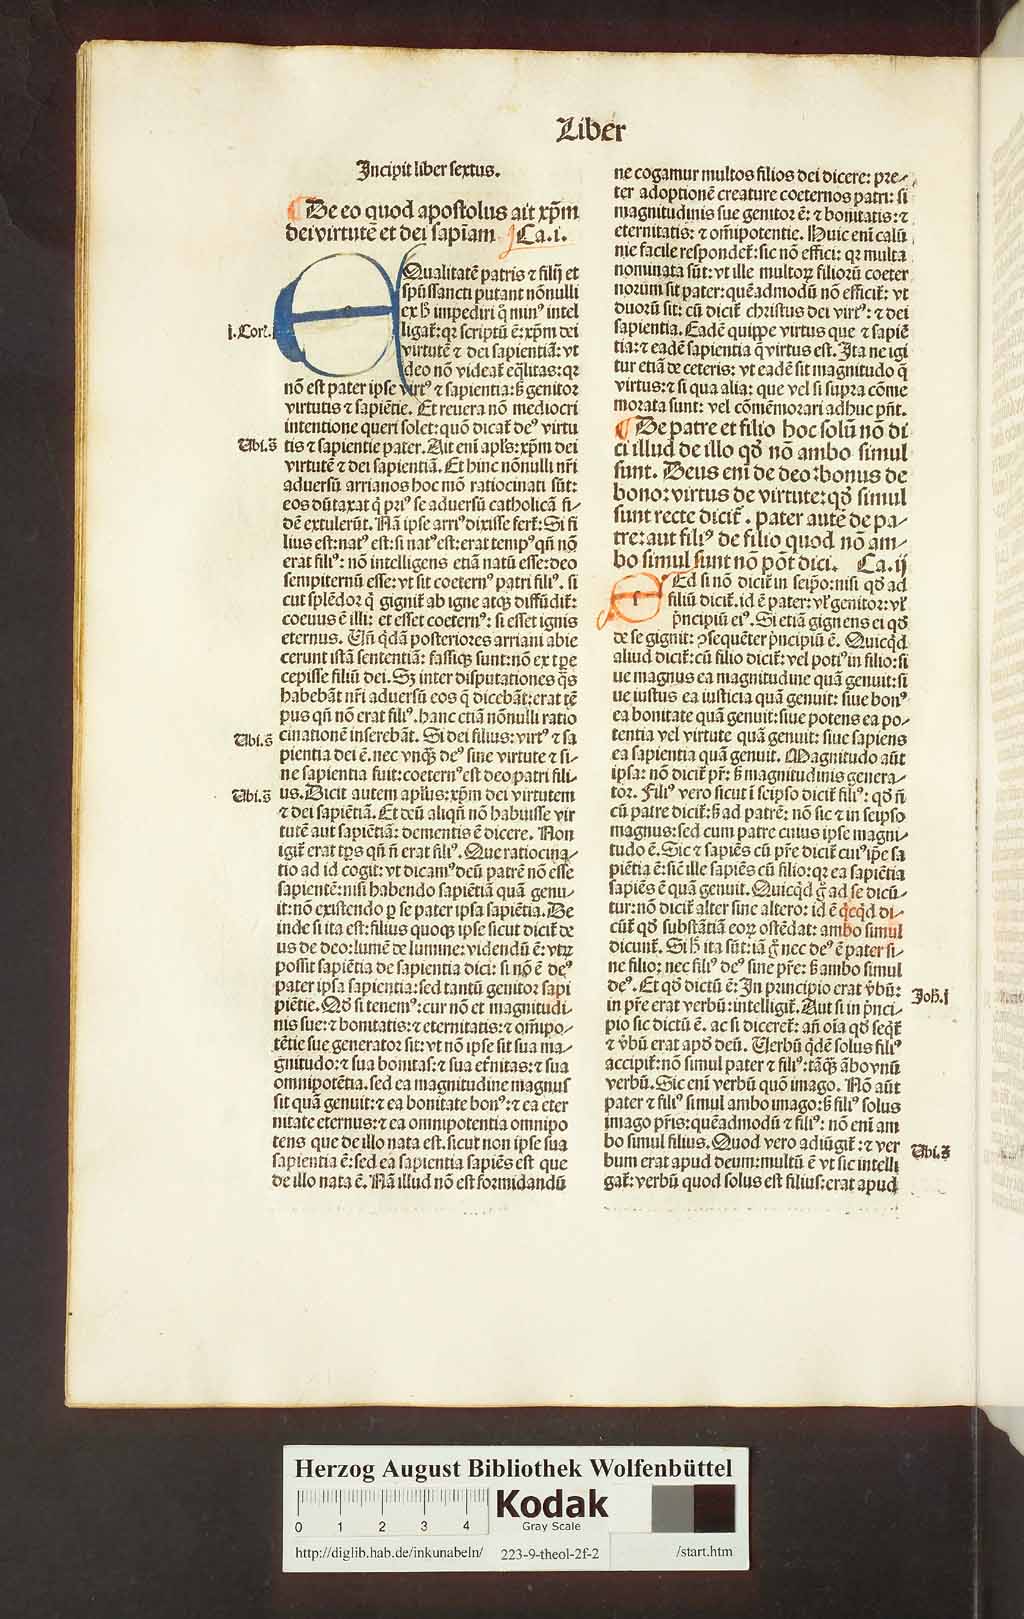 Liber
Incipit liber sextus.
¶ De eo quod apostolus ait xp̄m
dei virtutē et dei sapiam Ca.i.
EQualitatē patris ⁊ filij et
spūssancti putant nōnulli
ex h̄ impediri q̄ minꝰ intel
ligat̄: qꝛ scriptū ē: xp̄m dei
virtutē ⁊ dei sapientiā: vt
deo nō videat̄ eq̄litas: qꝛ
i. Corͥ. i
nō est pater ipse virtꝰ ⁊ sapientia: s̄ genitor
virtutis ⁊ sapiētie. Et reuera nō mediocri
intentione queri solet: quō dicat̄ deꝰ virtu
tis ⁊ sapientie pater. Ait eni apl̄s: xp̄m dei
Ubi.s̄
virtutē ⁊ dei sapientiā. Et hinc nōnulli nr̄i
aduersū arrianos hoc mō ratiocinati sūt:
eos dūtaxat q̄ priꝰ se aduersū catholicā fi⸗
dē extulerūt. Nā ipse arriꝰ dixisse fert̄: Si fi
lius est: natꝰ est: si natꝰ est: erat tempꝰ qn̄ nō
erat filiꝰ: nō intelligens etiā natū esse: deo
sempiternū esse: vt sit coeternꝰ patri filiꝰ. si
cut splēdor q̄ gignit̄ ab igne atqꝫ diffūdit̄:
coeuus ē illi: et esset coeternꝰ: si esset ignis
eternus. Un̄ q̄dā posteriores arriani abie
cerunt istā sententiā: fassiqꝫ sunt: nō ex tp̄e
cepisse filiū dei. Sꝫ inter disputationes q̄s
habebāt nr̄i aduersū eos q̄ dicebāt: erat tē
pus qn̄ nō erat filiꝰ. hanc etiā nōnulli ratio
cinationē inserebāt. Si dei filius: virtꝰ ⁊ sa
Ubi.s̄
pientia dei ē. nec vnq̄ꝫ deꝰ sine virtute ⁊ si⸗
ne sapientia fuit: coeternꝰ est deo patri fili⸗
us. Dicit autem apl̄us: xp̄m dei virtutem
Ubi.s̄
⁊ dei sapiētiā. Et deū aliqn̄ nō habuisse vir
tutē aut sapiētiā: dementis ē dicere. Non
igit̄ erat tp̄s qn̄ n̄ erat filiꝰ. Que ratiocina⸗
tio ad id cogit: vt dicamꝰ deū patrē nō esse
sapientē: nisi habendo sapiētiā quā genu⸗
it: nō existendo ꝑ se pater ipsa sapiētia. De
inde si ita est: filius quoqꝫ ipse sicut dicit̄ de
us de deo: lumē de lumine: videndū ē: vtꝝ
possit sapiētia de sapientia dici: si nō ē deꝰ
pater ipsa sapientia: sed tantū genitor sapi
piētie. Qd̄ si tenemꝰ: cur nō et magnitudi⸗
nis sue: ⁊ bonitatis: ⁊ eternitatis: ⁊ om̄ipo⸗
tētie sue generator sit: vt nō ipse sit sua ma⸗
gnitudo: ⁊ sua bonitas: ⁊ sua et̄nitas: ⁊ sua
omnipotētia. sed ea magnitudine magnus
sit quā genuit: ⁊ ea bonitate bonꝰ: ⁊ ea eter
nitate eternus: ⁊ ea omnipotentia omnipo
tens que de illo nata est. sicut non ipse sua
sapientia ē: sed ea sapientia sapiēs est que
de illo nata ē. Nā illud nō est formidandū
ne cogamur multos filios dei dicere: pre⸗
ter adoptionē creature coeternos patri: si
magnitudinis sue genitor ē: ⁊ bonitatis: ⁊
eternitatis: ⁊ om̄ipotentie. Huic eni calū
nie facile respondet̄: sic nō effici: qꝛ multa
nominata sūt: vt ille multoꝝ filiorū coeter
norum sit pater: quēadmodū nō efficit̄: vt
duorū sit: cū dicit̄ christus dei virtꝰ: ⁊ dei
sapientia. Eadē quippe virtus que ⁊ sapiē
tia: ⁊ eadē sapientia q̄ virtus est. Ita ne igi
tur etiā de ceteris: vt eadē sit magnitudo q̄
virtus: ⁊ si qua alia: que vel si supra cōme
morata sunt: vel cōmēmorari adhuc pn̄t.
¶ De patre et filio hoc solū nō di
ci illud de illo qd̄ nō ambo simul
sunt. Deus eni de deo: bonus de
bono: virtus de virtute: qd̄ simul
sunt recte dicit̄. pater autē de pa⸗
tre: aut filiꝰ de filio quod nō am⸗
bo simul sunt nō pōt dici. Ca.ij
SEd si nō dicit̄ in seip̄o: nisi qd̄ ad
filiū dicit̄. id ē pater: vl̓ genitor: vl̓
p̄ncipiū eiꝰ. Si etiā gignens ei qd̄
de se gignit: ꝯsequēter p̄ncipiū ē. Quicq̄d
aliud dicit̄: cū filio dicit̄: vel potiꝰ in filio: si
ue magnus ea magnitudine quā genuit: si
ue iustus ea iusticia quā genuit: siue bonꝰ
ea bonitate quā genuit: siue potens ea po⸗
tentia vel virtute quā genuit: siue sapiens
ea sapientia quā genuit. Magnitudo aūt
ipsa: nō dicit̄ pr̄: s̄ magnitudinis genera⸗
tor. Filiꝰ vero sicut ī seipso dicit̄ filiꝰ: qd̄ n̄
cū patre dicit̄: s̄ ad patrē: nō sic ⁊ in seipso
magnus: sed cum patre cuius ipse magni⸗
tudo ē. Sic ⁊ sapiēs cū pr̄e dicit̄ cuiꝰ ip̄e sa
piētia ē: sic̄ ille sapiēs cū filio: qꝛ ea sapiētia
sapiēs ē quā genuit. Quicq̄d g̊ ad se dicū⸗
tur: nō dicit̄ alter sine altero: id ē q̄cq̄d di⸗
cūt̄ qd̄ substātiā eoꝝ ostēdat: ambo simul
dicunt̄. Si h̄ ita sūt: iā g̊ nec deꝰ ē pater si⸗
ne filio: nec filiꝰ deꝰ sine pr̄e: s̄ ambo simul
deꝰ. Et qd̄ dictū ē: In principio erat v̄bū:
Joh̄. i
in pr̄e erat verbū: intelligit̄. Aut si in p̄nci⸗
pio sic dictū ē. ac si diceret̄: an̄ oīa qd̄ seqt̄
⁊ v̄bū erat apd̄ deū. Verbū q̄dē solus filiꝰ
accipit̄: nō simul pater ⁊ filiꝰ: tāq̄ꝫ ābo vnū
verbū. Sic eni verbū quō imago. Nō aūt
pater ⁊ filiꝰ simul ambo imago: s̄ filiꝰ solus
imago pr̄is: quēadmodū ⁊ filiꝰ: nō eni am
bo simul filius. Quod vero adiūgit̄: ⁊ ver
Ubi.s̄
bum erat apud deum: multū ē vt sic intelli
gat̄: verbū quod solus est filius: erat apud
Herzog August Bibliothek Wolfenbüttel
Kodak
Gray Scale
0 1 2 3 4
http://diglib.hab.de/inkunabeln/ 223-9-theol-2f-2 /start.htm